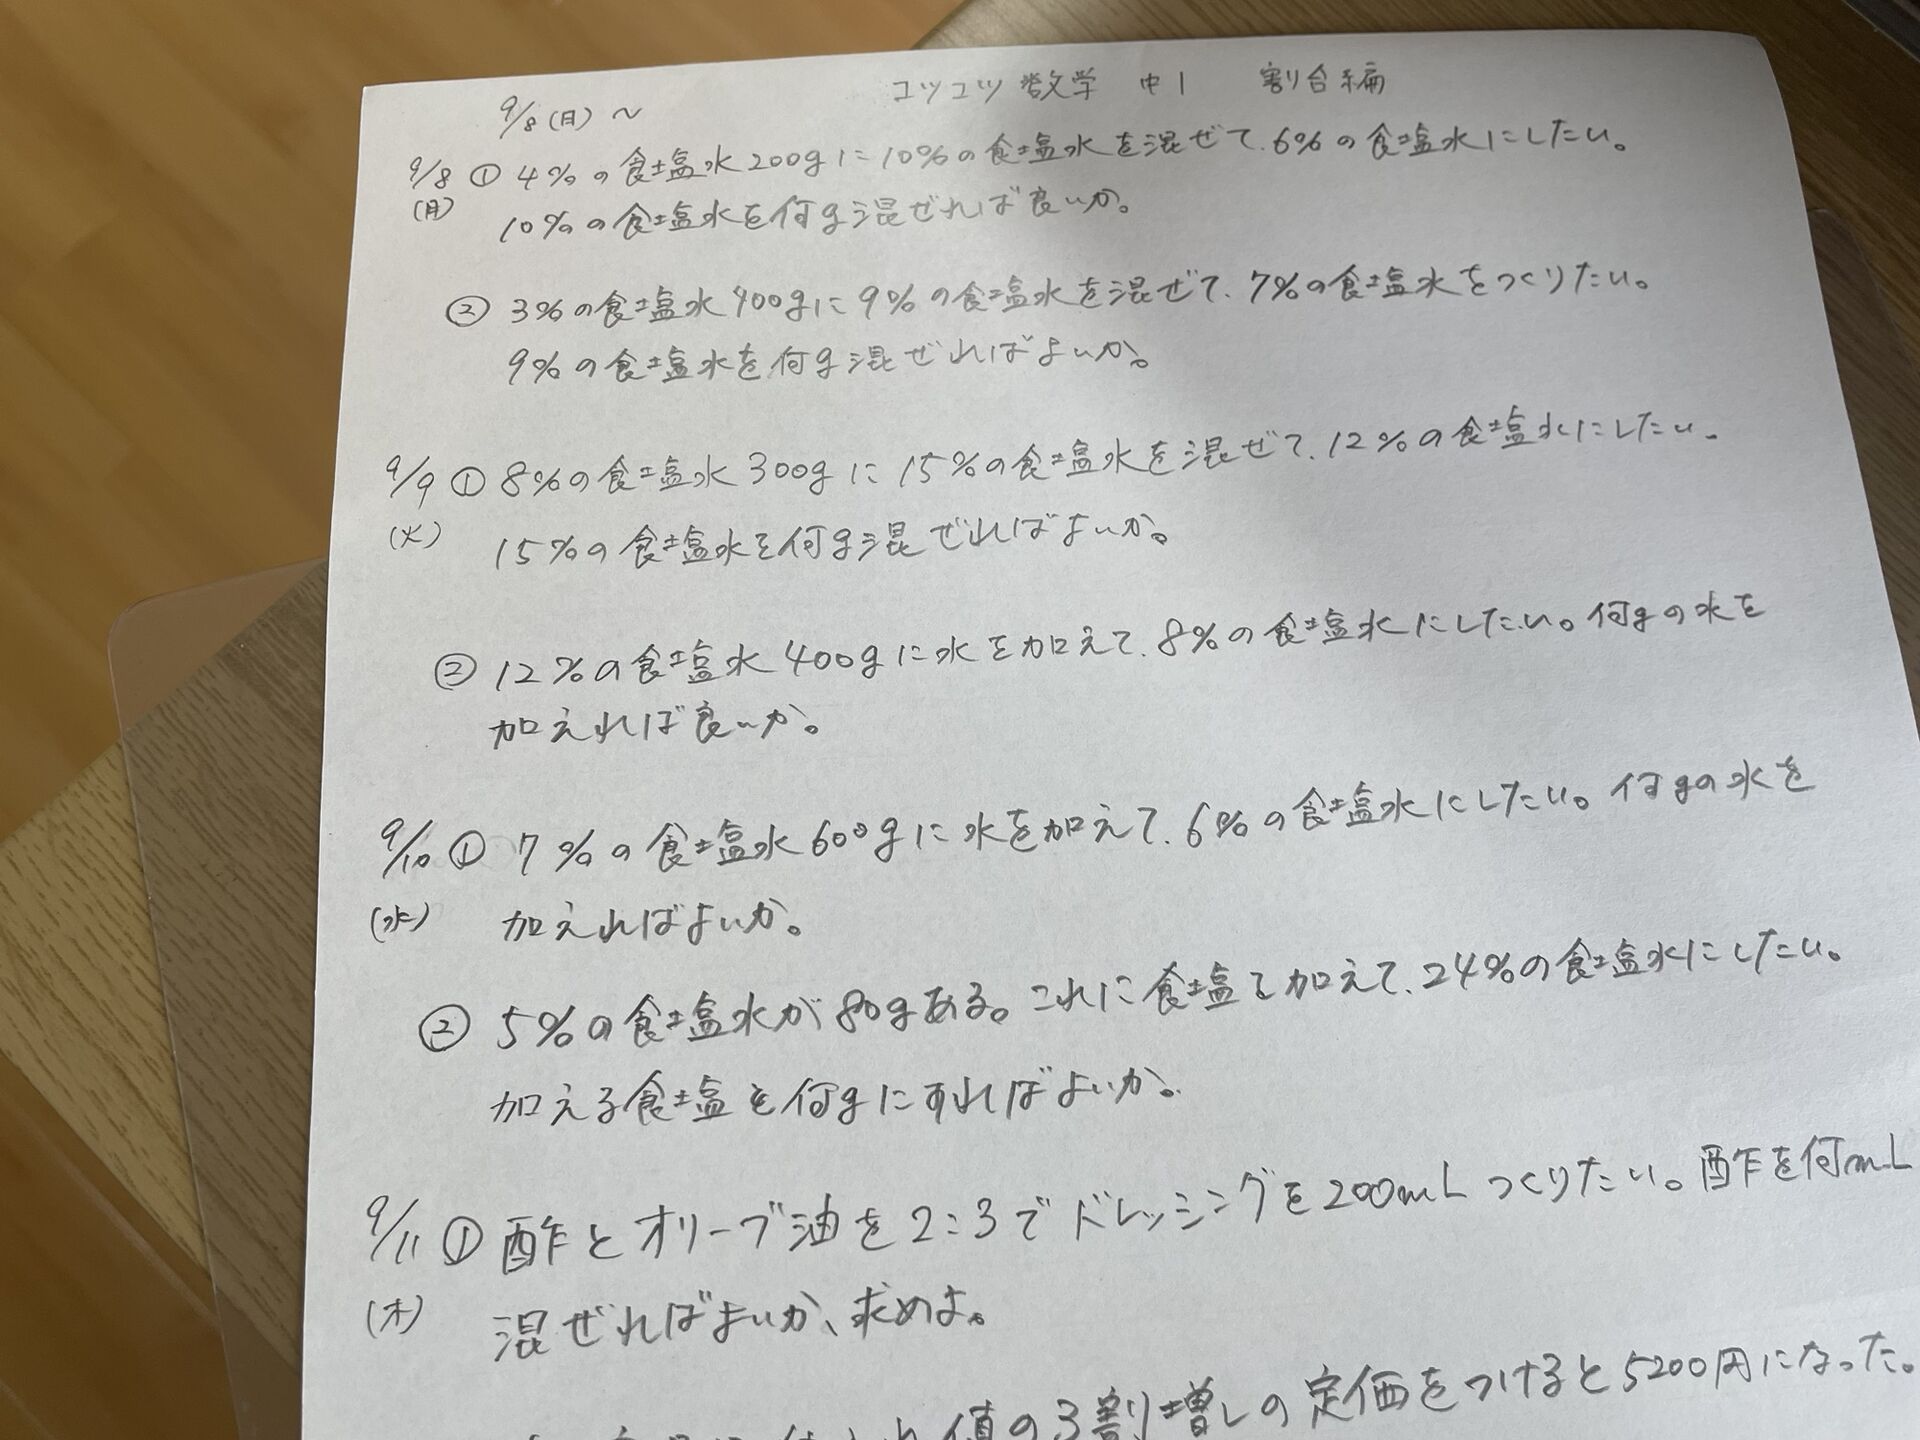 コツコツ数学 中1 割合編
9/8(月)~
9/8 ① 4%の食塩水200gに10%の食塩水を混ぜて、6%の食塩水にしたい。
(月) 10%の食塩水を何g混ぜれば良いか。
② 3%の食塩水400gに9%の食塩水を混ぜて、7%の食塩水をつくりたい。
9%の食塩水を何g混ぜればよいか。
9/9 ① 8%の食塩水300gに15%の食塩水を混ぜて、12%の食塩水にしたい。
(火) 15%の食塩水を何g混ぜればよいか。
② 12%の食塩水400gに水を加えて、8%の食塩水にしたい。何gの水を
加えれば良いか。
9/10 ① 7%の食塩水600gに水を加えて、6%の食塩水にしたい。何gの水を
(水) 加えればよいか。
② 5%の食塩水が80gある。これに食塩を加えて、24%の食塩水にしたい。
加える食塩を何gにすればよいか。
9/11 ① 酢とオリーブ油を2:3でドレッシングを200mLつくりたい。酢を何mL
(木) 混ぜればよいか、求めよ。
値の3割増しの定価をつけると5200円になった。